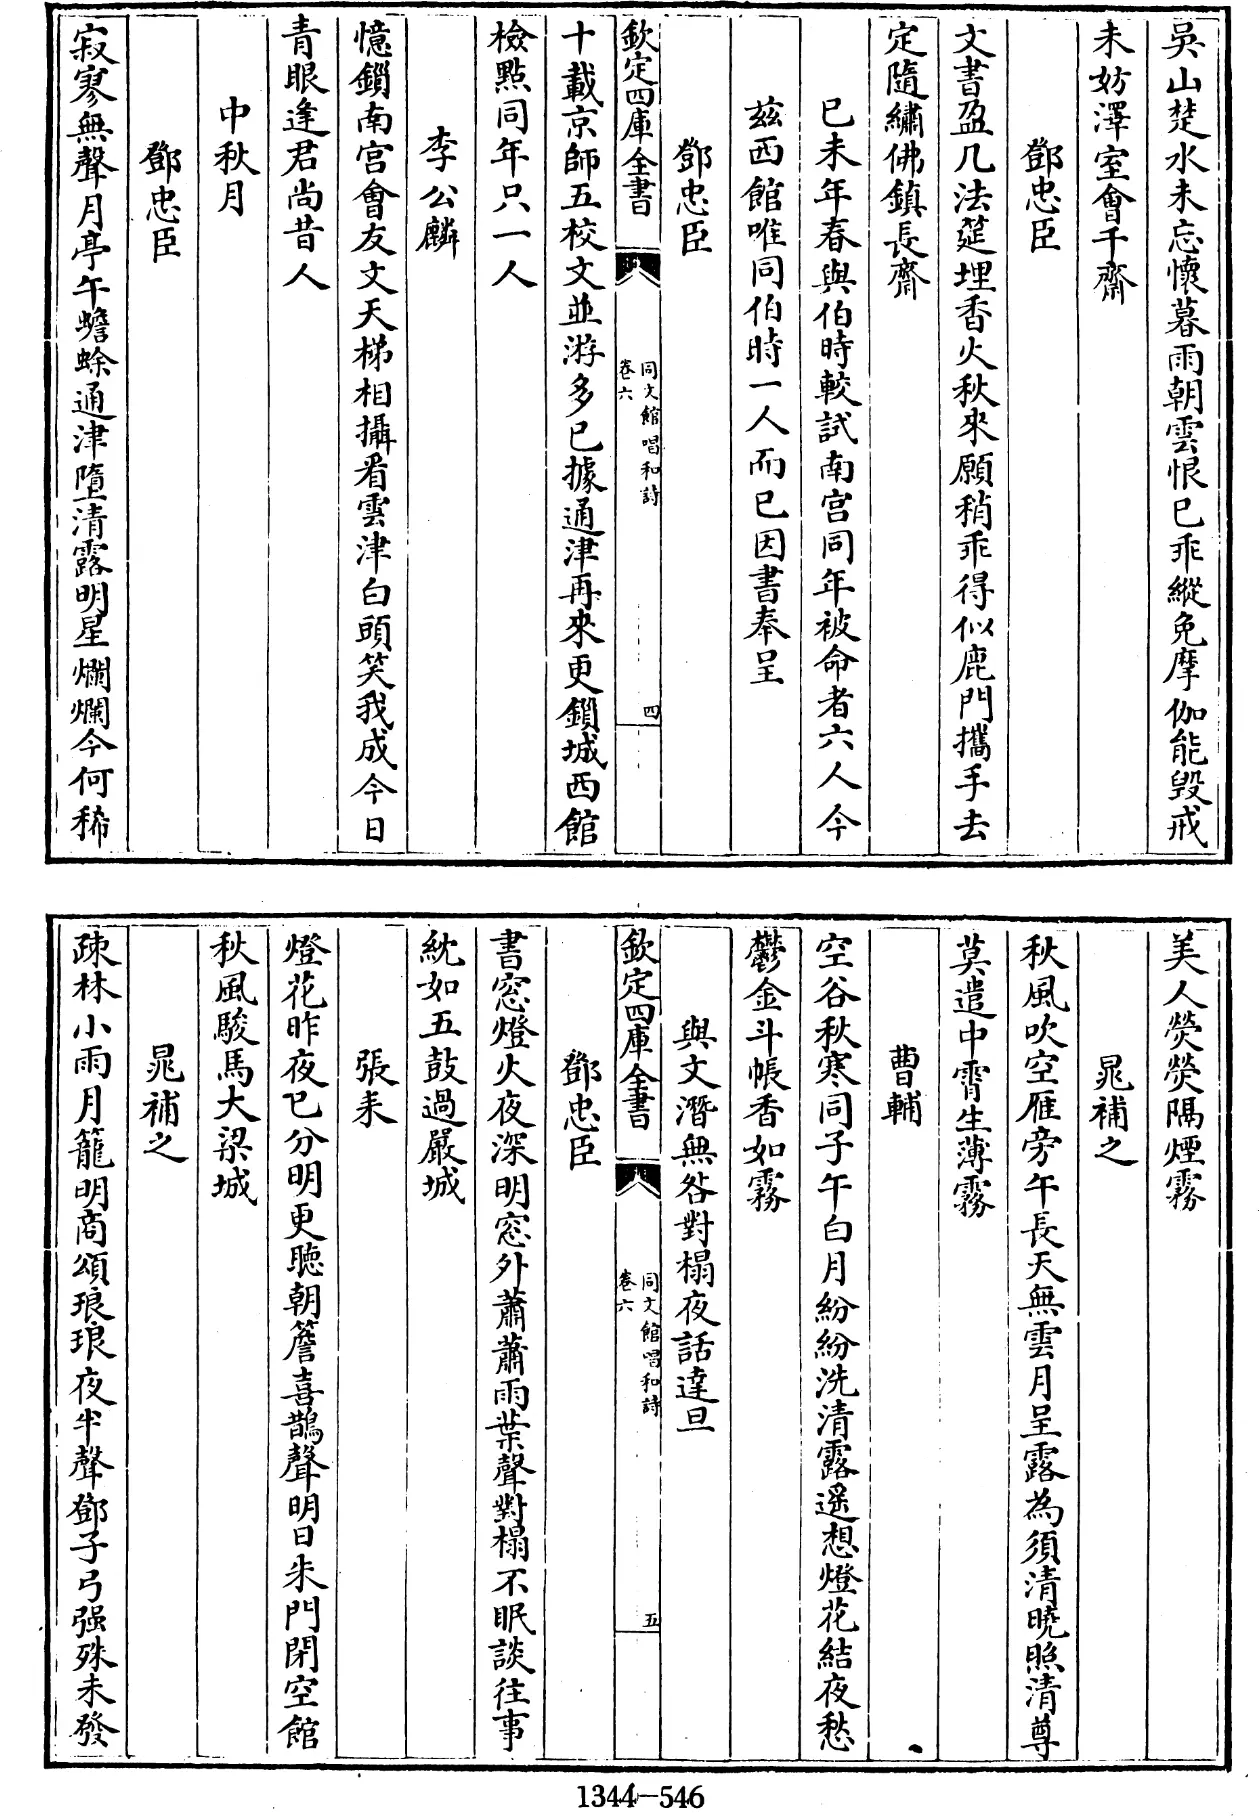 吳山楚水未忘懷暮雨朝雲恨已乖縱免摩伽能毀戒
未妨澤室會千齋
鄧忠臣
文書盈几法筵埋香火秋來願稍乖得似鹿門攜手去
定隨繡佛鎮長齋
已未年春與伯時較試南宮同年被命者六人今
兹西館唯同伯時一人而已因書奉呈
鄧忠臣
欽定四庫全書
同文館唱和詩
卷六
四
十載京師五校文並游多已據通津再來更鎖城西館
檢點同年只一人
李公麟
憶鎖南宮會友文天梯相攝看雲津白頭笑我成今日
青眼逢君尚昔人
中秋月
鄧忠臣
寂寥無聲月亭午蟾蜍通津墮清露明星爛爛今何稀
美人熒熒隔煙霧
晁補之
秋風吹空雁旁午長天無雲月呈露為須清曉照清尊
莫遣中霄生薄霧
曹輔
空谷秋寒同子午白月紛紛洗清露遥想燈花結夜愁
鬱金斗帳香如霧
與文潛無咎對榻夜話達旦
欽定四庫全書
同文館唱和詩
卷六
五
鄧忠臣
書窓燈火夜深明窓外蕭蕭雨葉聲對榻不眠談往事
紞如五鼓過嚴城
張耒
燈花昨夜已分明更聽朝簷喜鵲聲明日朱門閉空館
秋風駿馬大梁城
晁補之
疎林小雨月籠明商頌琅琅夜半聲鄧子弓强殊未發
1344-546